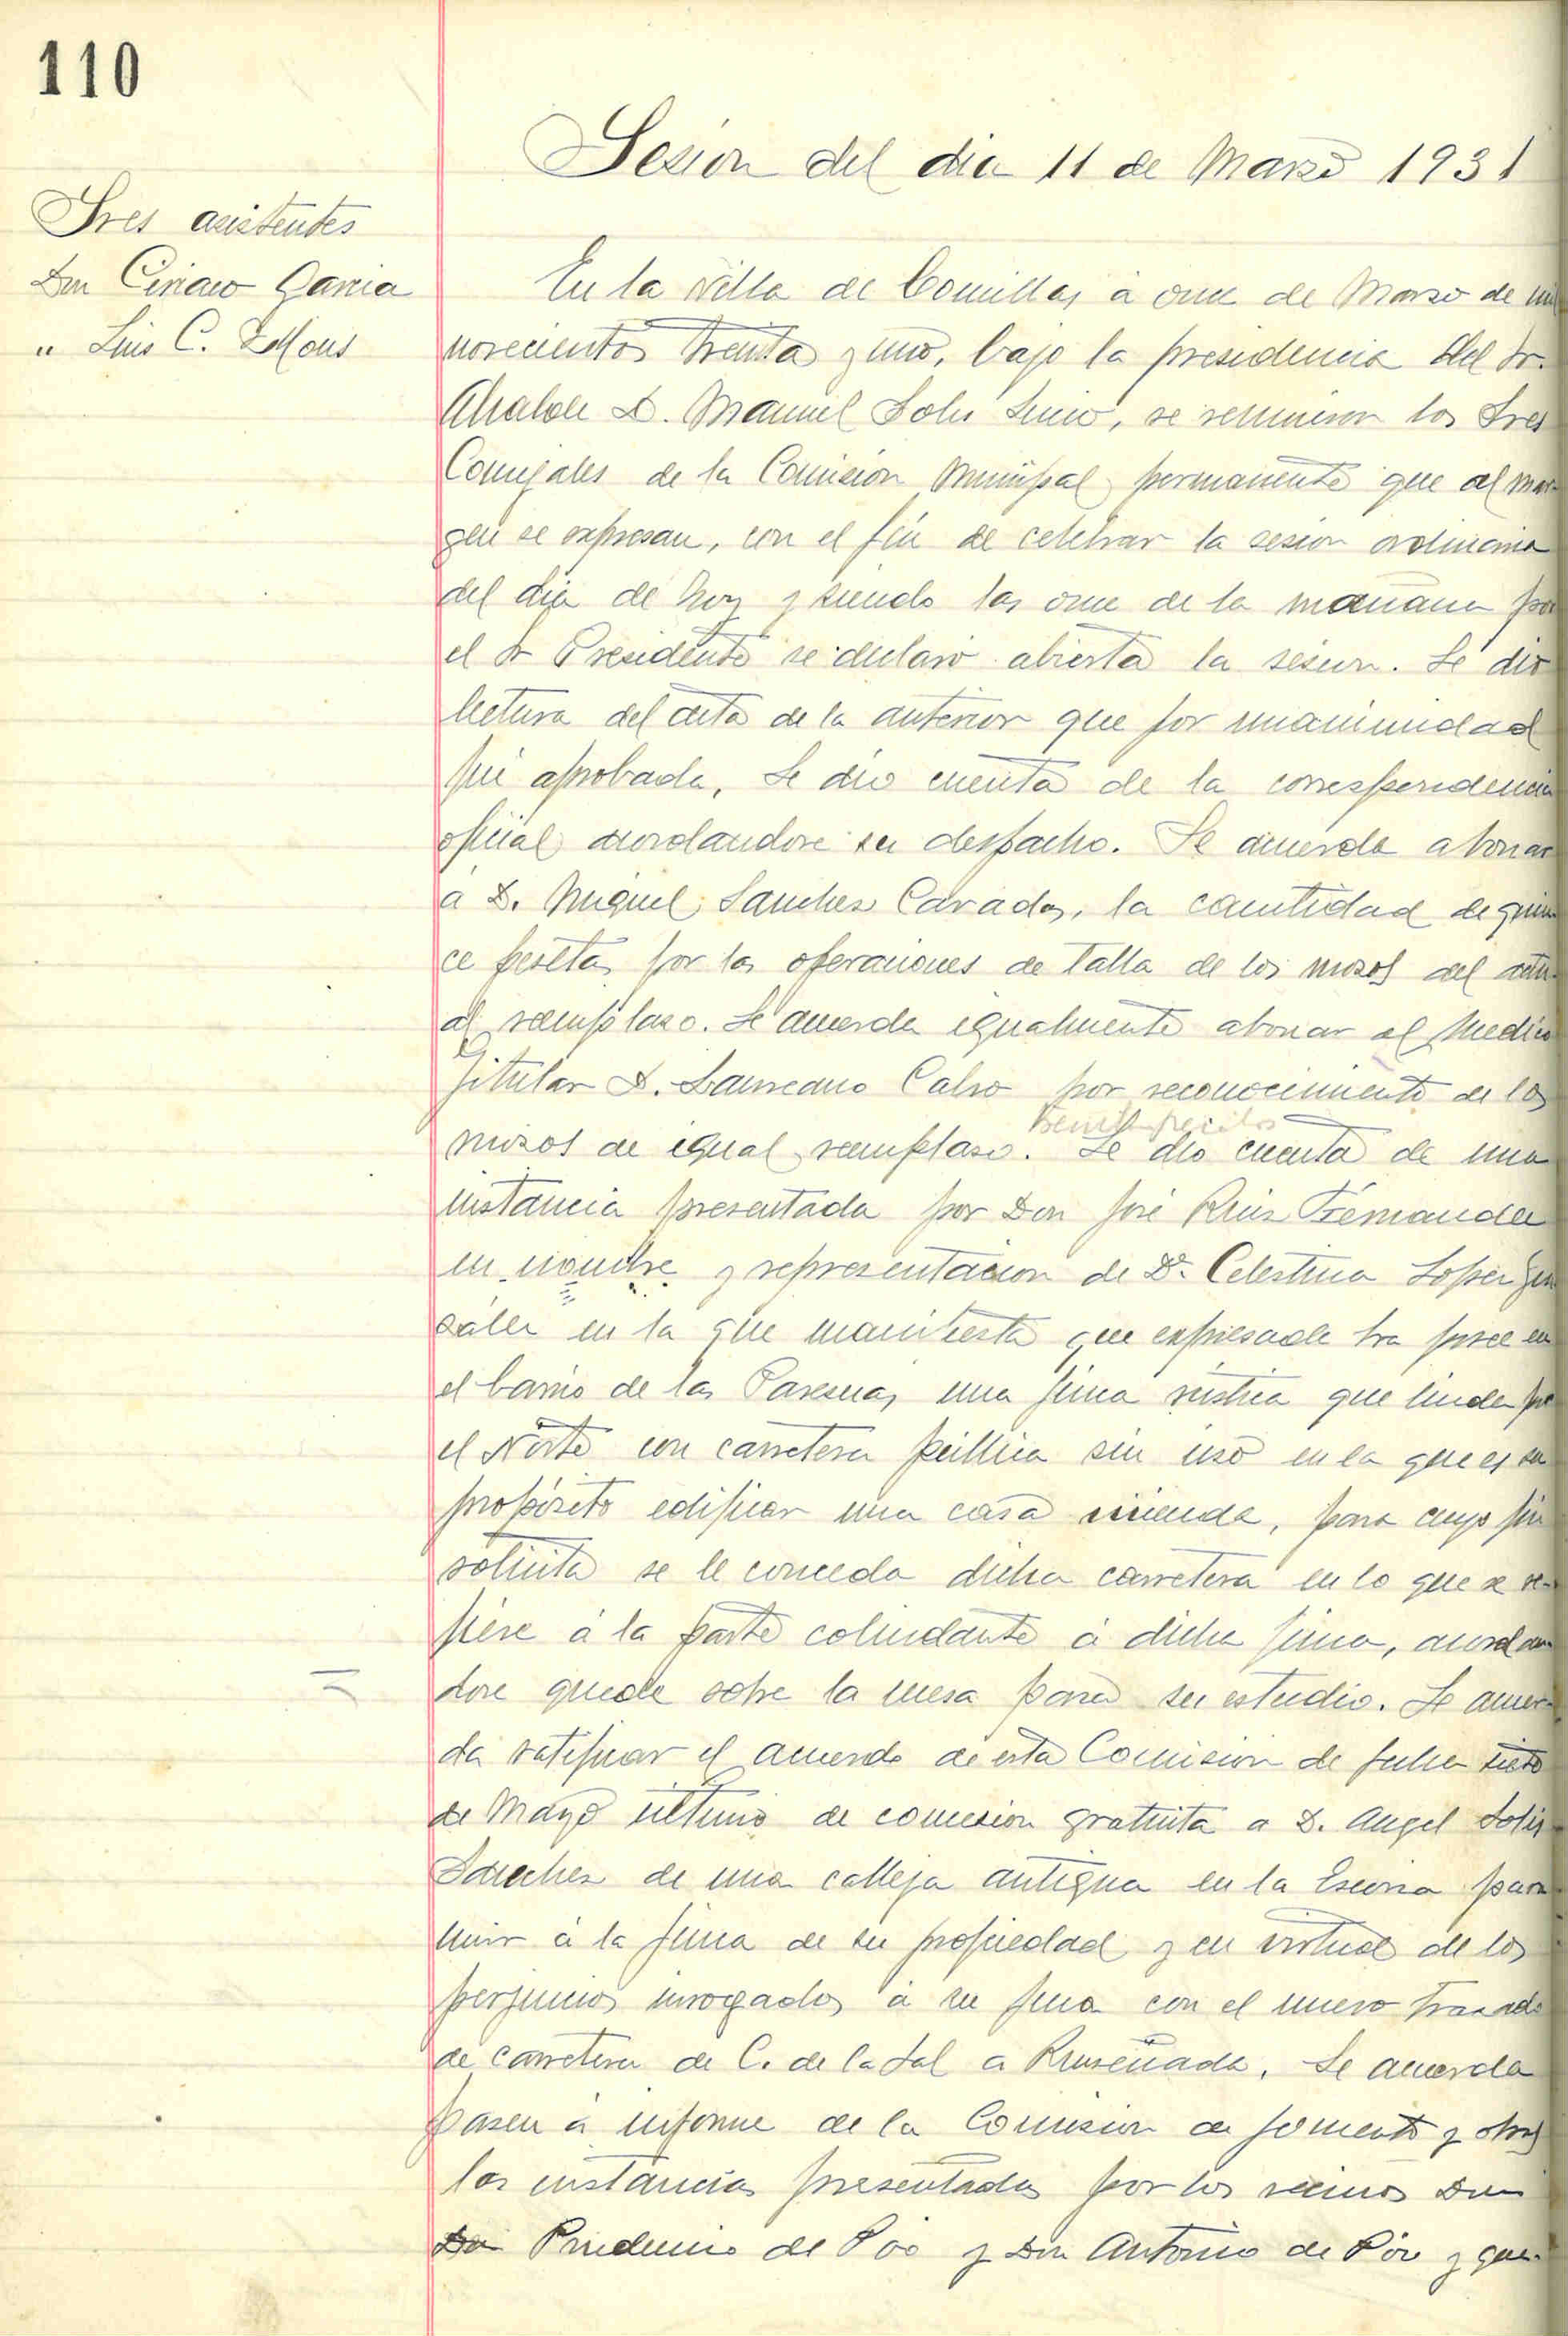 110
Sesion del dia 11 de Marzo 1931
Sres asistentes
Don Ciriaco Garcia
" Luis C.
En la Villa de Comillas à once de Marzo de mil
novecientos treinta y uno, bajo la presidencia del Sr.
Alcalde D. Manuel Solis, se reunieron los Sres
Concejales de la Comision Municipal permanente que al mar-
gen se expresan, con el fin de celebrar la sesion ordinaria
del dia de hoy y siendo las once de la mañana por
el Sr Presidente se declaro abierta la sesion. Se dio
lectura del acta de la anterior que por unanimidad
fué aprobada, Se dio cuenta de la correspondencia
oficial acordandose su despacho. Se acuerda abonar
a D. Miguel Sanchez, la cantidad de quin
ce pesetas por las operaciones de talla de los mozos del actu-
al reemplazo. Se acuerda igualmente abonar al Medico
Titular D. Laureano Calvo por reconocimiento de los
mozos de igual reemplazo. Se dio cuenta de una
instancia presentada por Don José Ruiz Fernandez
en nombre y representacion de Dª. Celestina Lopez Gon
zalez en la que manifiesta que expresada Sra posee en
el barrio de las una finca rústica que linda por
el Norte con carretera publica sin uso en la que es su
propósito edificar una casa vivienda, para cuyo fin
solicita se le conceda dicha carretera en lo que se re-
fiere a la parte colindante à dicha finca, acordan
dose quede sobre la mesa para su estudio. Se acuer-
da ratificar el acuerdo de esta Comision de fecha siete
de Mayo último de concesion gratuita a D. Angel Solis
Sanchez de una calleja antigua en la para
unir à la finca de su propiedad y en virtud de los
perjuicios irrogados à su finca con el nuevo trazado
de carretera de C. de la Sal a Ruiseñada. Se acuerda
pasen à informe de la Comision de fomento y obras
las instancias presentadas por los vecinos Don
Prudencio de Pio y Don Antonio de Pio y que